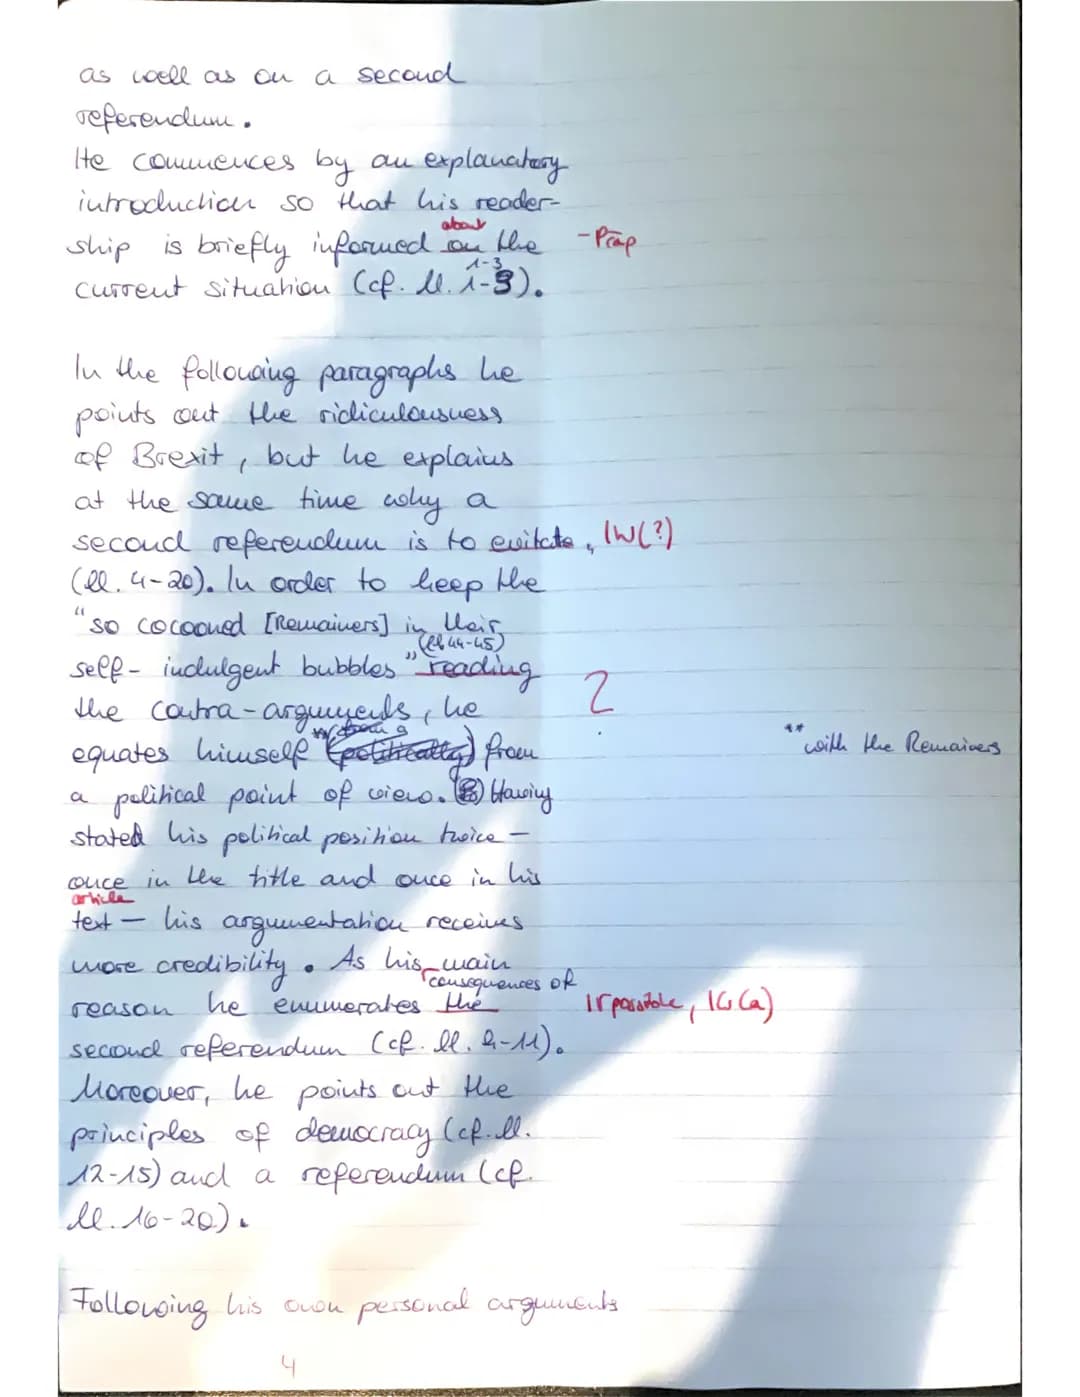 as well as on a second
referendum.
He commences by an explanatory
introduction so that his reader-
about
ship is briefly informed on the -Präp
1-3
current situation (cf. ll. 1-3).
In the following paragraphs he
points out the ridiculousness
of Brexit, but he explains
at the same time why a
second referendum is to evitate, IW(?)
(ll. 4-20). In order to keep the
"so cocooned [Remainers] in their
(ll 44-45)
self-indulgent bubbles" reading
the contra-arguments, he ?
equates himself ** (politically) from
** with the Remainers
a political point of view. Having
stated his political position twice -
once in the title and once in his
article
text - his argumentation receives
more credibility. As his main
consequences of
reason he enumerates the Ir possible, IG(a)
second referendum (cf. ll. 4-11).
Moreover, he points out the
principles of democracy (cf. ll.
12-15) and a referendum (cf.
ll. 16-20).
Following his own personal arguments
4